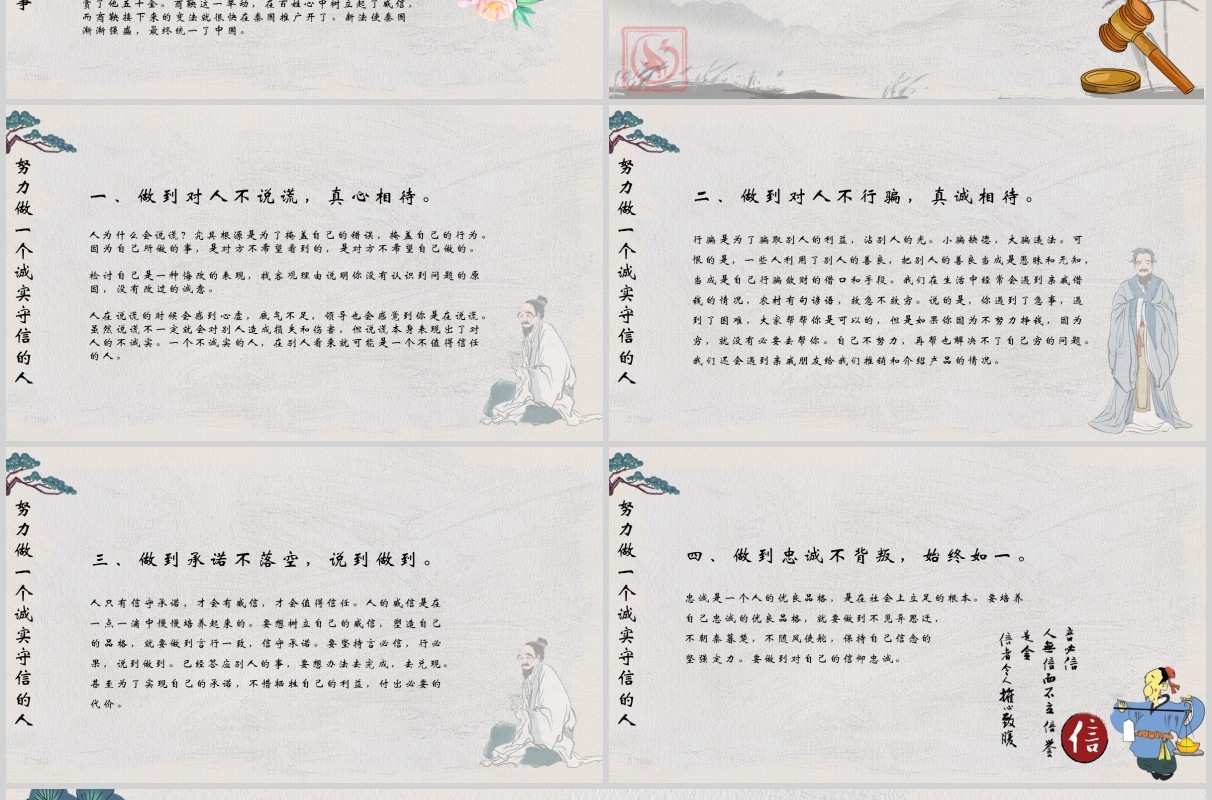 事
赏了他五十金。商鞅这一举动，在百姓心中树立起了威信，
而商鞅接下来的变法就很快在秦国推广开了。新法使秦国
渐渐强盛，最终统一了中国。
努力做一个诚实守信的人
一、做到对人不说谎，真心相待。
人为什么会说谎？究其根源是为了掩盖自己的错误，掩盖自己的行为。
因为自己所做的事，是对方不希望看到的，是对方不希望自己做的。
检讨自己是一种悔改的表现，找客观理由说明你没有认识到问题的原
因，没有改过的诚意。
人在说谎的时候会感到心虚，底气不足，领导也会感觉到你是在说谎。
虽然说谎不一定就会对别人造成损失和伤害，但说谎本身表现出了对
人的不诚实。一个不诚实的人，在别人看来就可能是一个不值得信任
的人。
努力做一个诚实守信的人
二、做到对人不行骗，真诚相待。
行骗是为了骗取别人的利益，沾别人的光。小骗缺德，大骗违法。可
恨的是，一些人利用了别人的善良，把别人的善良当成是愚昧和无知，
当成是自己行骗敛财的借口和手段。我们在生活中经常会遇到亲戚借
钱的情况，农村有句谚语，救急不救穷。说的是，你遇到了急事，遇
到了困难，大家帮帮你是可以的，但是如果你因为不努力挣钱，因为
穷，就没有必要去帮你。自己不努力，再帮也解决不了自己穷的问题。
我们还会遇到亲戚朋友给我们推销和介绍产品的情况。
努力做一个诚实守信的人
三、做到承诺不落空，说到做到。
人只有信守承诺，才会有威信，才会值得信任。人的威信是在
一点一滴中慢慢培养起来的。要想树立自己的威信，塑造自己
的品格，就要做到言行一致，信守承诺。要坚持言必信，行必
果，说到做到。已经答应别人的事，要想办法去完成，去兑现。
甚至为了实现自己的承诺，不惜牺牲自己的利益，付出必要的
代价。
努力做一个诚实守信的人
四、做到忠诚不背叛，始终如一。
忠诚是一个人的优良品格，是在社会上立足的根本。要培养
自己忠诚的优良品格，就要做到不见异思迁，
不朝秦暮楚，不随风使舵，保持自己信念的
坚强定力。要做到对自己的信仰忠诚。
言必信
人無信而不立 信誉
是金
信者令人擁心致暖
信